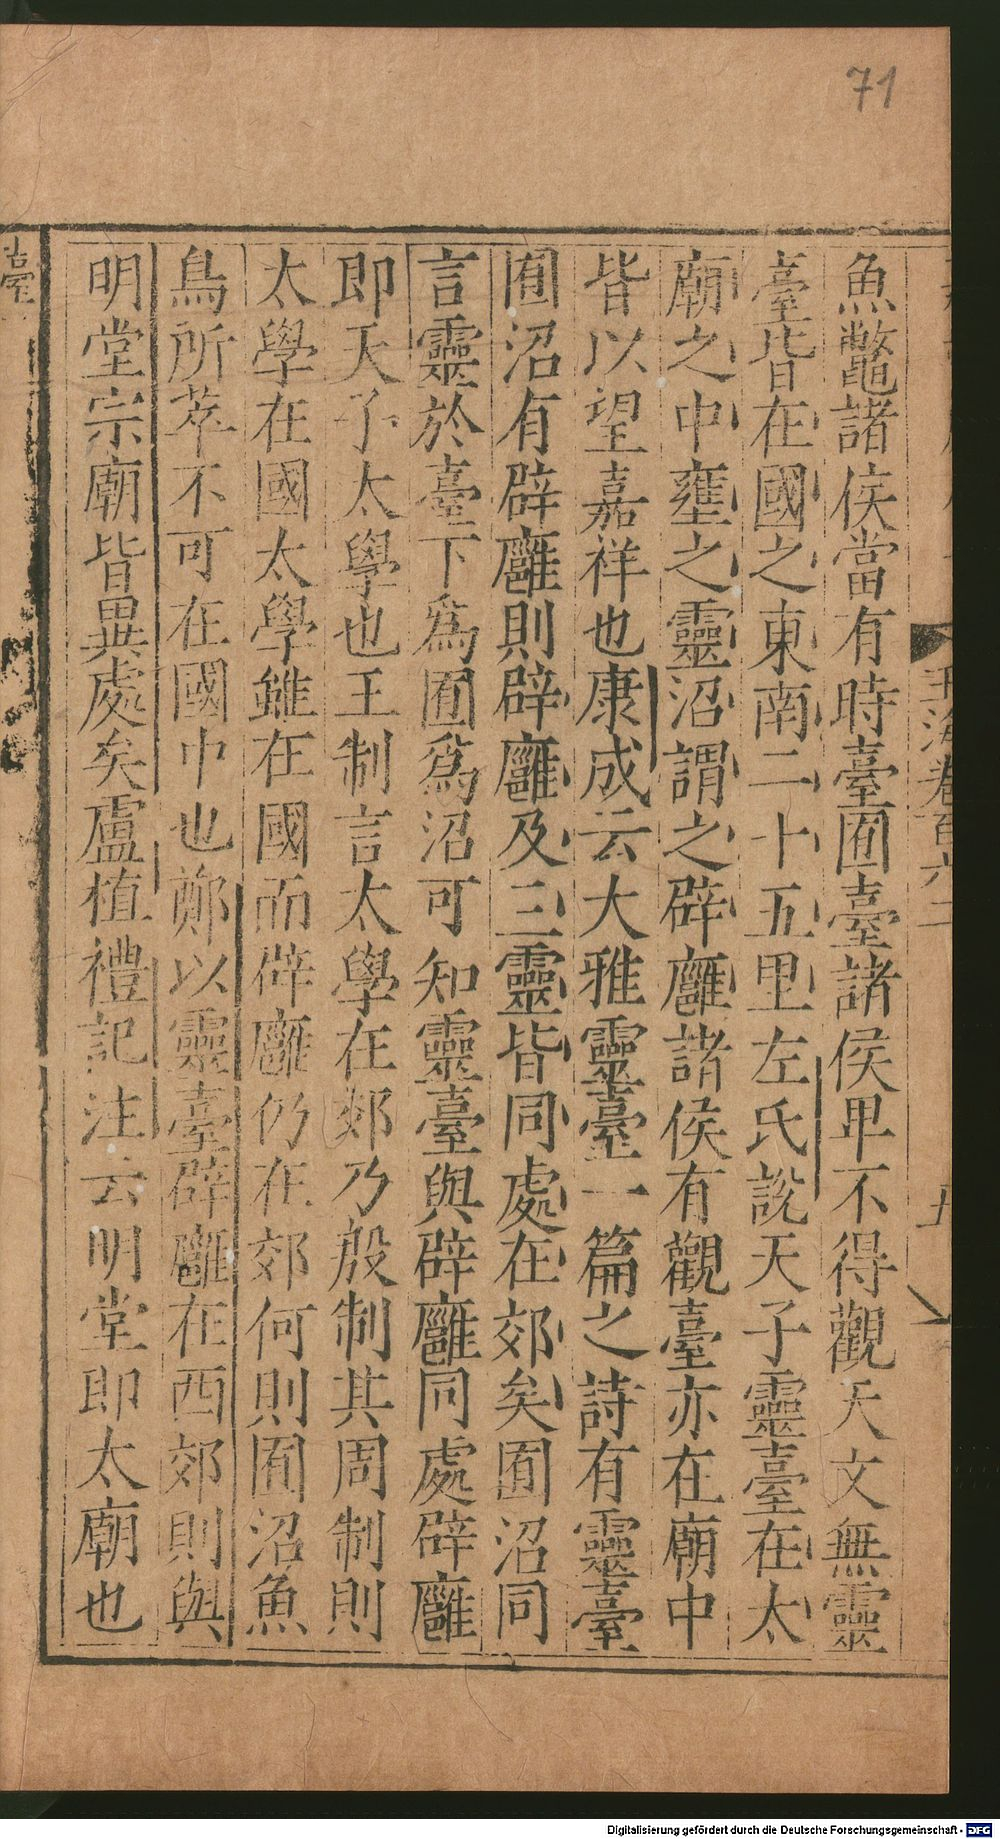 71
玉海卷百六二
五
魚鼈諸侯當有時臺囿臺諸侯卑不得觀天文無靈
臺皆在國之東南二十五里左氏說天子靈臺在太
廟之中壅之靈沼謂之辟廱諸侯有觀臺亦在廟中
皆以望嘉祥也康成云大雅靈臺一篇之詩有靈臺
囿沼有辟廱則辟廱及三靈皆同處在郊矣囿沼同
言靈於臺下爲囿爲沼可知靈臺與辟廱同處辟廱
即天子太學也王制言太學在郊乃殷制其周制則
太學在國太學雖在國而辟廱仍在郊何則囿沼魚
鳥所萃不可在國中也鄭以靈臺辟廱在西郊則與
明堂宗廟皆異處矣盧植禮記注云明堂即太廟也
臺
Digitalisierung gefördert durch die Deutsche Forschungsgemeinschaft - DFG